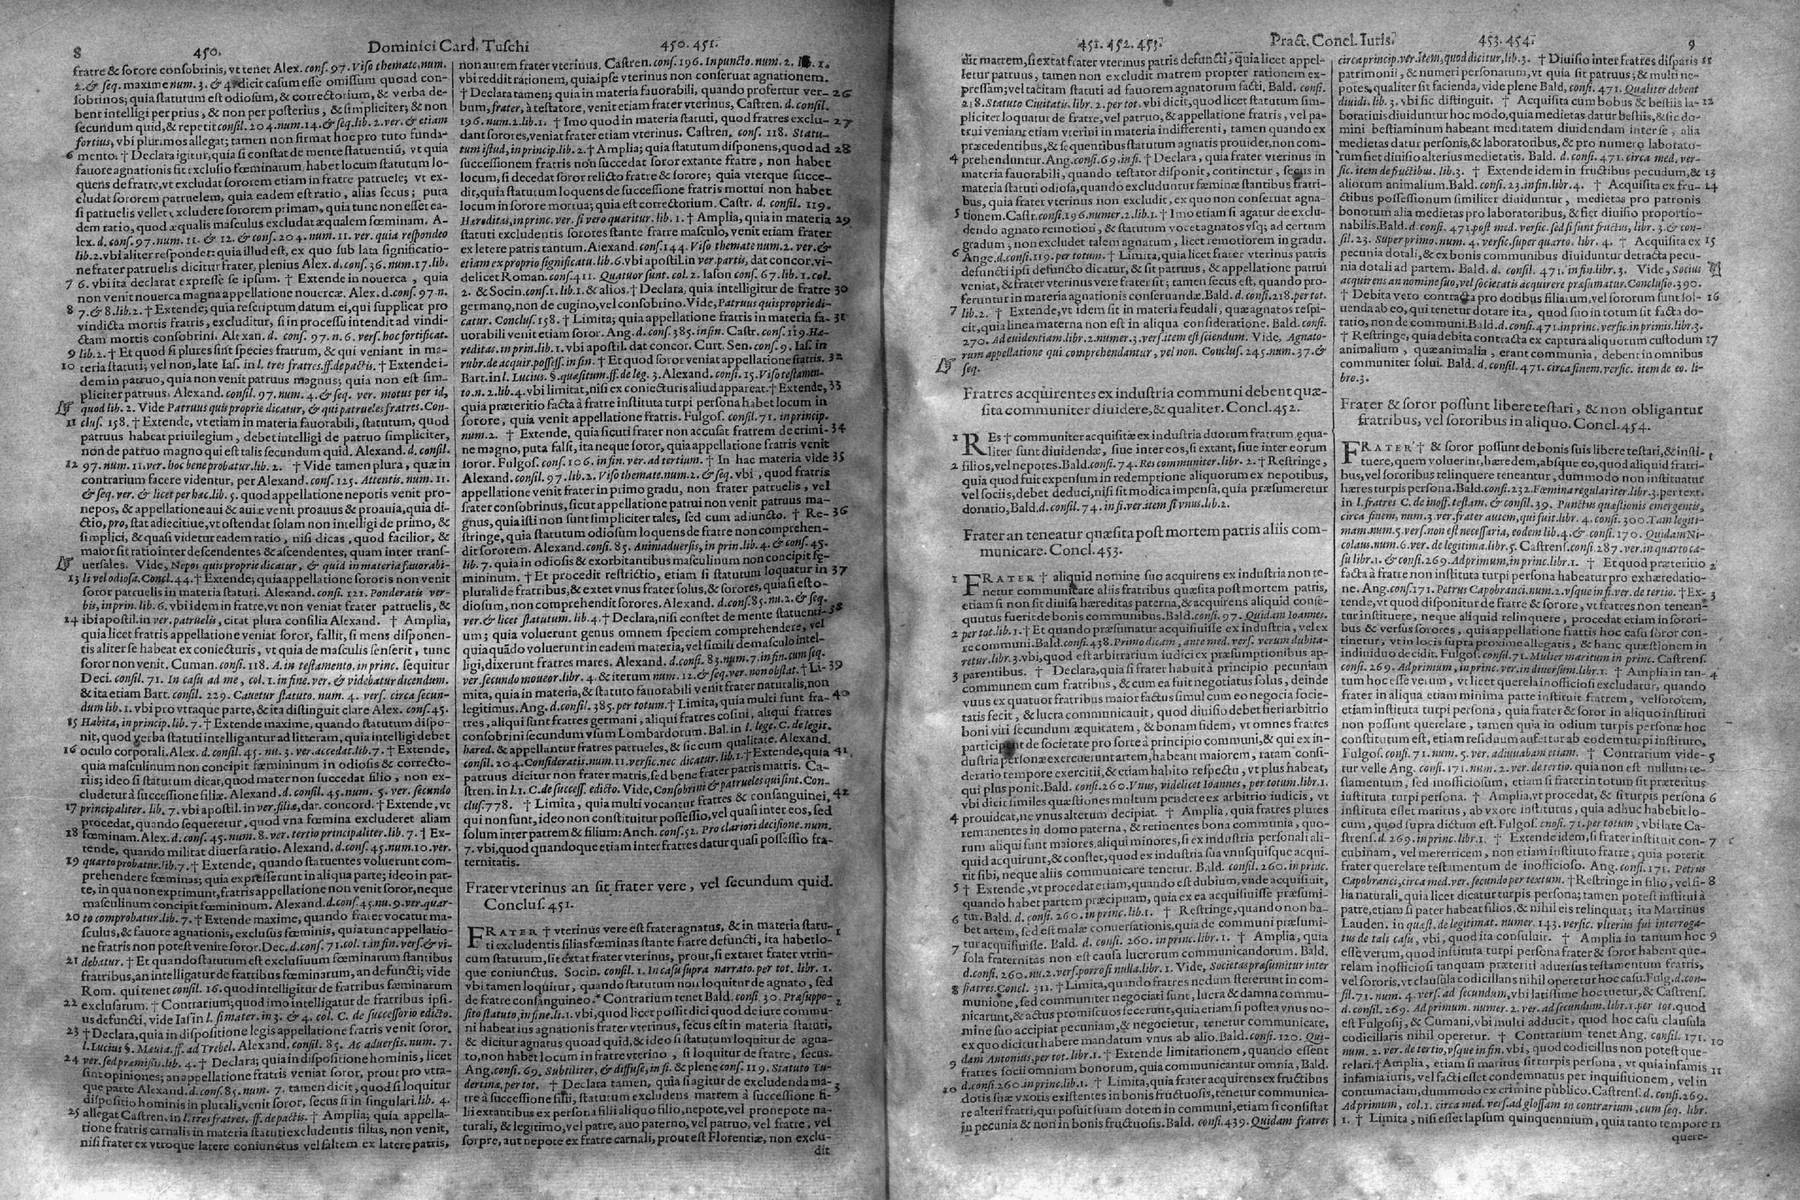 8 450. Dominici Card. Tuschi 450. 451.
fratre & sorore consobrinis, vt tenet Alex. conf. 97. Viso themate, num.
2. & seq. maxime num. 3. & 4. dicit casum esse omissum quoad con-
sobrinos; quia statutum est odiosum, & correctorium, & verba de-
bent intelligi per prius, & non per posterius, & simpliciter; & non
secundum quid, & repetit consil. 204. num. 14. & seq. lib. 2. ver. & etiam
fortius, vbi plurimos allegat; tamen non firmat hoc pro tuto funda-
6 mento. † Declara igitur, quia si constat de mente statuentiū, vt quia
fauore agnationis fit exclusio fœminarum, habet locum statutum lo-
quens de fratre, vt excludat sororem etiam in fratre patruele; vt ex-
cludat sororem patruelem, quia eadem est ratio, alias secus; puta
si patruelis vellet excludere sororem primam, quia tunc non esset ea-
dem ratio, quod æqualis masculus excludat æqualem fœminam. A-
lex. d. conf. 97. num. 11. & 12. & conf. 204. num. 11. ver. quia respondeo
lib. 2. vbi aliter respondet: quia illud est, ex quo sub lata significatio-
ne frater patruelis dicitur frater, plenius Alex. d. conf. 36. num. 17. lib.
7 6. vbi ita declarat expresse se ipsum. † Extende in nouerca, quia
non venit nouerca magna appellatione nouercæ. Alex. d. conf. 97. n.
8 7. & 8. lib. 2. † Extende; quia rescriptum datum ei, qui supplicat pro
vindicta mortis fratris, excluditur, si in processu intendit ad vindi-
ctam mortis consobrini. Alexan. d. conf. 97. n. 6. vers. hoc fortificat.
9 lib. 2. † Et quod si plures sint species fratrum, & qui veniant in ma-
10 teria statuti; vel non, late Ias. in l. tres fratres. ff. de pactis. † Extende i-
dem in patruo, quia non venit patruus magnus; quia non est sim-
pliciter patruus. Alexand. conf. 97. num. 4. & seq. ver. motus per id,
quod lib. 2. Vide Patruus quis proprie dicatur, & qui patrueles fratres. Con-
11 clus. 158. † Extende, vt etiam in materia fauorabili, statutum, quod
patruus habeat priuilegium, debet intelligi de patruo simpliciter,
non de patruo magno qui est talis secundum quid. Alexand. d. consil.
12 97. num. 11. ver. hoc bene probatur. lib. 2. † Vide tamen plura, quæ in
contrarium facere videntur, per Alexand. conf. 125. Attentis. num. 11.
& seq. ver. & licet per hac. lib. 5. quod appellatione nepotis venit pro-
nepos, & appellatione aui & auiæ venit proauus & proauia, quia di-
ctio, pro, stat adiectiue, vt ostendat solam non intelligi de primo, &
simplici, & quasi videtur eadem ratio, nisi dicas, quod facilior, &
maior sit ratio inter descendentes & ascendentes, quam inter trans-
uersales. Vide, Nepos quis proprie dicatur, & quid in materia fauorabi-
13 li vel odiosa. Concl. 44. † Extende; quia appellatione sororis non venit
soror patruelis in materia statuti. Alexand. conf. 121. Ponderatis ver-
bis, in prin. lib. 6. vbi idem in fratre, vt non veniat frater patruelis, &
14 ibi apostil. in ver. patruelis, citat plura consilia Alexand. † Amplia,
quia licet fratris appellatione veniat soror, fallit, si mens disponen-
tis aliter se habeat ex coniecturis, vt quia de masculis senserit, tunc
soror non venit. Cuman. conf. 118. A. in testamento, in princ. sequitur
Deci. consil. 71. In casu ad me, col. 1. in fine. ver. & videbatur dicendum.
& ita etiam Bart. consil. 229. Cauetur statuto. num. 4. vers. circa secun-
dum lib. 1. vbi pro vtraque parte, & ita distinguit clare Alex. conf. 45.
15 Habita, in princip. lib. 7. † Extende maxime, quando statutum dispo-
nit, quod verba statuti intelligantur ad litteram, quia intelligi debet
16 oculo corporali. Alex. d. consil. 45. nu. 3. ver. accedat. lib. 7. † Extende,
quia masculinum non concipit fœmininum in odiosis & correcto-
riis; ideo si statutum dicat, quod mater non succedat filio, non ex-
cludetur à successione filiæ. Alexand. d. consil. 45. num. 5. ver. secundo
17 principaliter. lib. 7. vbi apostil. in ver. filia, dat. concord. † Extende, vt
procedat, quando sequeretur, quod vna fœmina excluderet aliam
18 fœminam. Alex. d. conf. 45. num. 8. ver. tertio principaliter. lib. 7. † Ex-
tende, quando militat diuersa ratio. Alexand. d. conf. 45. num. 10. ver.
19 quarto probatur. lib. 7. † Extende, quando statuentes voluerunt com-
prehendere fœminas; quia expresserunt in aliqua parte; ideo in par-
te, in qua non exprimunt, fratris appellatione non venit soror, neque
masculinum concipit fœmininum. Alexand. d. conf. 45. nu. 9. ver. quar-
20 to comprobatur. lib. 7. † Extende maxime, quando frater vocatur ma-
sculus, & fauore agnationis, exclusis fœminis, quia tunc appellatio-
ne fratris non potest venire soror. Dec. d. conf. 71. col. 1. in fin. vers. & vi-
21 debatur. † Et quando statutum est exclusiuum fœminarum stantibus
fratribus, an intelligatur de fratribus fœminarum, an defuncti; vide
Rom. qui tenet consil. 16. quod intelligitur de fratribus fœminarum
22 exclusarum. † Contrarium; quod imo intelligatur de fratribus ipsi-
us defuncti, vide Ias in l. si mater. in 3. & 4. col. C. de successorio edicto.
23 † Declara, quia in dispositione legis appellatione fratris venit soror.
l. Lucius §. Mauia. ff. ad Trebel. Alexand. consil. 85. Ac aduersis. num. 7.
24 ver. sed præmissis. lib. 4. † Declara; quia in dispositione hominis, licet
sint opiniones; an appellatione fratris veniat soror, prout pro vtra-
que parte Alexand. d. conf. 85. num. 7. tamen dicit, quod si loquitur
dispositio hominis in plurali, venit soror, secus si in singulari. lib. 4.
25 allegat Castren. in l. tres fratres. ff. de pactis. † Amplia; quia appella-
tione fratris carnalis in materia statuti excludentis filias, non venit,
nisi frater ex vtroque latere coniunctus vel saltem ex latere patris,
non autem frater vterinus. Castren. conf. 196. In puncto. num. 2. lib. 1.
vbi reddit rationem, quia ipse vterinus non conseruat agnationem.
† Declara tamen; quia in materia fauorabili, quando profertur ver- 26
bum, frater, à testatore, venit etiam frater vterinus, Castren. d. consil.
196. num. 2. lib. 1. † Imo quod in materia statuti, quod fratres exclu- 27
dant sorores, veniat frater etiam vterinus. Castren. conf. 118. Statu-
tum istud, in princip. lib. 2. † Amplia; quia statutum disponens, quod ad 28
successionem fratris non succedat soror extante fratre, non habet
locum, si decedat soror relicto fratre & sorore; quia vterque succe-
dit; quia statutum loquens de successione fratris mortui non habet
locum in sorore mortua; quia est correctorium. Castr. d. consil. 119.
Hæreditas, in princ. ver. si vero quæritur. lib. 1. † Amplia, quia in materia 29
statuti excludentis sorores stante fratre masculo, venit etiam frater
ex letere patris tantum. Alexand. conf. 144. Viso themate num. 2. ver. &
etiam ex proprio significatu. lib. 6. vbi apostil. in ver. partis, dat concor. vi-
delicet Roman. conf. 411. Quatuor sunt. col. 2. Iason conf. 67. lib. 1. col.
2. & Socin. conf. 1. lib. 1. & alios. † Declara, quia intelligitur de fratre 30
germano, non de cugino, vel consobrino. Vide, Patruus quis proprie di-
catur. Concluf. 158. † Limita; quia appellatione fratris in materia fa- 31
uorabili venit etiam soror. Ang. d. conf. 385. in fin. Castr. conf. 119. Hæ-
reditas. in prin. lib. 1. vbi apostil. dat concor. Curt. Sen. conf. 9. Ias. in
rubr. de acquir. poss. in fin. † Et quod soror veniat appellatione fratris. 32
Bart. in l. Lucius. §. quæsitum. ff. de leg. 3. Alexand. conf. 15. Viso testamen-
to. n. 2. lib. 4. vbi limitat, nisi ex coniecturis aliud appareat. † Extende, 33
quia præteritio facta à fratre instituta turpi persona habet locum in
sorore, quia venit appellatione fratris. Fulgos. consil. 71. in princip.
num. 2. † Extende, quia sicuti frater non accusat fratrem de crimi- 34
ne magno, puta falsi, ita neque soror, quia appellatione fratris venit
soror. Fulgos. conf. 106. in fin. ver. ad tertium. † In hac materia vide 35
Alexand. consil. 97. lib. 2. Viso themate. num. 2. & seq. vbi, quod fratris
appellatione venit frater in primo gradu, non frater patruelis, vel
frater consobrinus, sicut appellatione patrui non venit patruus ma-
gnus, quia isti non sunt simpliciter tales, sed cum adiuncto. † Re- 36
stringe, quia statutum odiosum loquens de fratre non comprehen-
dit sororem. Alexand. consi. 85. Animaduersis, in prin. lib. 4. & conf. 45.
lib. 7. quia in odiosis & exorbitantibus masculinum non concipit fœ-
mininum. † Et procedit restrictio, etiam si statutum loquatur in 37
plurali de fratribus, & extet vnus frater solus, & sorores, quia si est o-
diosum, non comprehendit sorores. Alexand. d. conf. 85. nu. 2. & seq.
ver. & licet statutum. lib. 4. † Declara, nisi constet de mente statuenti- 38
um; quia voluerunt genus omnem speciem comprehendere, vel
quia quādo voluerunt in eadem materia, vel simili de masculo intel-
ligi, dixerunt fratres mares. Alexand. d. consil. 83. num. 7. in fin. cum seq.
ver. secundo moueor. lib. 4. & iterum num. 12. & seq. ver. non obstat. † Li- 39
mita, quia in materia, & statuto fauorabili venit frater naturalis, non
legitimus. Ang. d. consil. 385. per totum. † Limita, quia multi sunt fra- 40
tres, aliqui sunt fratres germani, aliqui fratres cosini, aliqui fratres
consobrini secundum vsum Lombardorum. Bal. in l. lege. C. de legit.
hæred. & appellantur fratres patrueles, & sic cum qualitate. Alexand.
consil. 204. Consideratis. num. 11. versic. nec dicatur. lib. 1. † Extende, quia 41
patruus dicitur non frater matris, sed bene frater patris matris. Ca-
stren. in l. 1. C. de success. edicto. Vide, Consobrini & patrueles qui sint. Con-
cluf. 778. † Limita, quia multi vocantur fratres & consanguinei, 42
qui non sunt, ideo non constituitur possessio, vel quasi inter eos, sed
solum inter patrem & filium: Anch. conf. 52. Pro clariori decisione. num.
7. vbi, quod quandoque etiam inter fratres datur quasi possessio fra-
ternitatis.
Frater vterinus an sit frater vere, vel secundum quid.
Concluf. 451.
FRATER † vterinus vere est frater agnatus, & in materia statu- 1
ti excludentis filias fœminas stante fratre defuncti, ita habet lo-
cum statutum, si extat frater vterinus, prout, si extaret frater vtrin-
que coniunctus. Socin. consil. 1. In casu supra narrato. per tot. libr. 1.
vbi tamen loquitur, quando statutum non loquitur de agnato, sed
de fratre consanguineo. † Contrarium tenet Bald. consil. 30. Præsuppo- 2
sito statuto, in fine. li. 1. vbi, quod licet possit dici quod de iure commu-
ni habeat ius agnationis frater vterinus, secus est in materia statuti,
& dicitur agnatus quoad quid, & ideo si statutum loquitur de agna-
to, non habet locum in fratre vterino, si loquitur de fratre, secus.
Ang. conf. 69. Subtiliter, & diffuse, in fi. & plene conf. 119. Statuto Tu-
dertinæ, per tot. † Declara tamen, quia si agitur de excludenda ma- 3
tre à successione filii, statutum excludens matrem à successione fi-
lii extantibus ex persona filii aliquo filio, nepote, vel pronepote na-
turali, & legitimo, vel patre, auo paterno, vel patruo, vel fratre, vel
sorore, aut nepote ex fratre carnali, prout est Florentiæ, non exclu-
dit
451. 452. 453. Pract. Concl. Iuris. 453. 454. 9
dit matrem, si extat frater vterinus patris defuncti, quia licet appel-
letur patruus, tamen non excludit matrem propter rationem ex-
pressam; vel tacitam statuti ad fauorem agnatorum facti, Bald. consi.
218. Statuto Ciuitatis. libr. 2. per tot. vbi dicit, quod licet statutum sim-
pliciter loquatur de fratre, vel patruo, & appellatione fratris, vel pa-
trui veniant etiam vterini in materia indifferenti, tamen quando ex
præcedentibus, & sequentibus statutum agnatis prouidet, non com-
4 prehenduntur. Ang. consi. 69. in fi. † Declara, quia frater vterinus in
materia fauorabili, quando testator disponit, continetur, secus in
materia statuti odiosa, quando excluduntur fœminæ stantibus fratri-
bus, quia frater vterinus non excludit, ex quo non conseruat agna-
5 tionem. Castr. conf. 196. numer. 2. lib. 1. † Imo etiam si agatur de exclu-
dendo agnato remotiori, & statutum vocet agnatos vsq; ad certum
gradum; non excludet talem agnatum, licet remotiorem in gradu.
6 Ange. consi. d. 119. per totum. † Limita, quia licet frater vterinus patris
defuncti ipsi defuncto dicatur, & sit patruus, & appellatione patrui
veniat, & frater vterinus vere frater sit; tamen secus est, quando pro-
feruntur in materia agnationis conseruandæ. Bald. d. consi. 218. per tot.
7 lib. 2. † Extende, vt idem sit in materia feudali, quæ agnatos respi-
cit, quia linea materna non est in aliqua consideratione. Bald. consi.
270. Ad euidentiam. libr. 2. numer. 3. vers. item si conceditur. Vide, Agnato-
rum appellatione qui comprehendantur, vel non. Concluf. 245. num. 37. &
seq.
Fratres acquirentes ex industria communi debent quæ-
sita communiter diuidere, & qualiter. Concl. 452.
1 RES † communiter acquisitæ ex industria duorum fratrum æqua-
liter sunt diuidendæ, siue inter eos, si extant, siue inter eorum
2 filios, vel nepotes. Bald. consi. 74. Res communiter. libr. 2. † Restringe,
quia quod fuit expensum in redemptione aliquorum ex nepotibus,
vel sociis, debet deduci, nisi sit modica impensa, quia præsumeretur
donatio, Bald. consil. 74. in fi. ver. item si vnus. lib. 2.
Frater an teneatur quæsita post mortem patris aliis com-
municare. Concl. 453.
1 FRATER † aliquid nomine suo acquirens ex industria non te-
netur communicare aliis fratribus quæsita post mortem patris,
etiam si non sit diuisa hæreditas paterna, & acquirens aliquid conse-
quutus fuerit de bonis communibus. Bald. consi. 97. Quidam Ioannes.
2 per tot. lib. 1. † Et quando præsumatur acquisiuisse ex industria, vel ex
re communi. Bald. consi. 438. Primo dicam, ante med. vers. verum dubita-
retur. libr. 3. vbi, quod est arbitrarium iudici ex præsumptionibus ap-
3 parentibus. † Declara, quia si frater habuit à principio pecuniam
communem cum fratribus, & cum ea fuit negotiatus solus, deinde
vnus ex quatuor fratribus maior factus simul cum eo negocia socie-
tatis fecit, & lucra communicauit, quod diuisio debet fieri arbitrio
boni viri secundum æquitatem, & bonam fidem, vt omnes fratres
participent de societate pro sorte à principio communi, & qui ex in-
dustria personæ exercuerunt artem, habeant maiorem, ratam consi-
deratio tempore exercitii, & etiam habito respectu, vt plus habeat,
qui plus ponit. Bald. consi. 260. Vnus, videlicet Ioannes, per totum. libr. 1.
vbi dicit similes quæstiones multum pendere ex arbitrio iudicis, vt
4 prouideat, ne vnus alterum decipiat. † Amplia, quia si fratres plures
remanentes in domo paterna, & retinentes bona communia, quo-
rum aliqui sunt maiores, aliqui minores, si ex industria personali ali-
quid acquirunt, & constet, quod ex industria sua vnusquisque acqui-
rit sibi, neque aliis communicare tenetur. Bald. consil. 260. in princ.
5 † Extende, vt procedat etiam, quando est dubium, vnde acquisiuit,
quando habet partem præcipuam, quia ex ea acquisiuisse præsumi-
6 tur. Bald. d. consi. 260. in princ. lib. 1. † Restringe, quando non ha-
bet artem, sed est malæ conuersationis, quia de communi præsumi-
7 tur acquisiuisse. Bald. d. consil. 260. in princ. libr. 1. † Amplia, quia
sola fraternitas non est causa lucrorum communicandorum. Bald.
d. consi. 260. nu. 2. vers. porro si nulla. libr. 1. Vide, Societas præsumitur inter
8 fratres. Concl. 311. † Limita, quando fratres nedum steterunt in com-
munione, sed communiter negociati sunt, lucra & damna commu-
nicarunt, & actus promiscuos fecerunt, quia etiam si postea vnus no-
mine suo accipiat pecuniam, & negocietur, tenetur communicare,
ex quo dicitur habere mandatum vnus ab alio. Bald. consi. 120. Qui-
9 dam Antonius, per tot. lib. 1. † Extende limitationem, quando essent
fratres socii omnium bonorum, quia communicantur omnia, Bald.
10 d. consi. 260. in princ. lib. 1. † Limita, quia frater acquirens ex fructibus
dotis suæ vxoris existentes in bonis fructuosis, tenetur communica-
re alteri fratri, qui posuit suam dotem in communi, etiam si consistat
in pecunia & non in bonis fructuosis. Bald. consi. 439. Quidam fratres
circa princip. ver. item, quod dicitur, lib. 3. † Diuisio inter fratres disparis 11
patrimonii, & numeri personarum, vt quia sit patruus; & multi ne-
potes, qualiter sit facienda, vide plene Bald. consi. 471. Qualiter debent
diuidi. lib. 3. vbi sic distinguit. † Acquisita cum bobus & bestiis la- 12
boratiuis diuiduntur hoc modo, quia medietas datur bestiis, & sic do-
mini bestiaminum habeant medietatem diuidendam inter se, alia
medietas datur personis, & laboratoribus, & pro numero laborato-
rum fiet diuisio alterius medietatis. Bald. d. consi. 471. circa med. ver-
sic. item de fructibus. lib. 3. † Extende idem in fructibus pecudum, & 13
aliorum animalium. Bald. consi. 23. in fin. libr. 4. † Acquisita ex fru- 14
ctibus possessionum similiter diuiduntur, medietas pro patronis
bonorum alia medietas pro laboratoribus, & fiet diuisio proportio-
nabilis. Bald. d. consi. 471. post med. versic. sed si sunt fructus, libr. 3. & con-
sil. 23. Super primo. num. 4. versic. super quarto. libr. 4. † Acquisita ex 15
pecunia dotali, & ex bonis communibus diuiduntur detracta pecu-
nia dotali ad partem. Bald. d. consil. 471. in fin. libr. 3. Vide, Socius
acquirens an nomine suo, vel societatis acquirere præsumatur. Conclusio. 390.
† Debita vero contracta pro dotibus filiarum, vel sororum sunt sol- 16
uenda ab eo, qui tenetur dotare ita, quod suo in totum sit facta do-
tatio, non de communi. Bald. d. consi. 471. in princ. versic. in primis. libr. 3.
† Restringe, quia debita contracta ex captura aliquorum custodum 17
animalium, quæ animalia, erant communia, debent in omnibus
communiter solui. Bald. d. consil. 471. circa finem, versic. item de eo. li-
bro. 3.
Frater & soror possunt libere testari, & non obligantur
fratribus, vel sororibus in aliquo. Concl. 454.
FRATER † & soror possunt de bonis suis libere testari, & insti- 1
tuere, quem voluerint, hæredem, absque eo, quod aliquid fratri-
bus, vel sororibus relinquere teneantur, dummodo non instituatur
hæres turpis persona. Bald. consi. 232. Fœmina regulariter. libr. 3. per text.
in l. fratres C. de inoff. testam. & consil. 39. Punctus quæstionis emergentis,
circa finem, num. 3. ver. frater autem, qui fuit. libr. 4. consi. 300. Tam legiti-
mam. num. 5. vers. non est necessaria, eodem lib. 4. & consi. 170. Quidam Ni-
colaus. num. 6. ver. de legitima. libr. 5. Castrens. consi. 287. ver. in quarto ca-
su. libr. 1. & consi. 269. Ad primum, in princ. libr. 1. † Et quod præteritio 2
facta à fratre non instituta turpi persona habeatur pro exhæredatio-
ne. Ang. consi. 171. Petrus Capobranci. num. 2. vsque in fi. ver. de tertio. † Ex- 3
tende, vt quod disponitur de fratre & sorore, vt fratres non tenean-
tur instituere, neque aliquid relinquere, procedat etiam in sorori-
bus & versus sorores, quia appellatione fratris hoc casu soror con-
tinetur, vt in locis supra proxime allegatis, & hanc quæstionem in
indiuiduo decidit. Fulgos. consi. 71. Mulier maritum in princ. Castrens.
consi. 269. Ad primum, in princ. ver. in diuersum. libr. 1. † Amplia in tan- 4
tum hoc esse verum, vt licet querela inofficiosi excludatur, quando
frater in aliqua etiam minima parte instituit fratrem, vel sororem,
etiam instituta turpi persona, quia frater & soror in aliquo instituti
non possunt querelare, tamen quia in odium turpis personæ hoc
constitutum est, etiam residuum aufertur ab eodem turpi instituto,
Fulgos. consi. 71. num. 5. ver. adiuuabam etiam. † Contrarium vide- 5
tur velle Ang. consi. 171. num. 2. ver. de tertio. quia non est nullum te-
stamentum, sed inofficiosum, etiam si frater in totum sit præteritus
instituta turpi persona. † Amplia, vt procedat, & si turpis persona 6
instituta esset maritus, ab vxore institutus, quia adhuc habebit lo-
cum, quod supra dictum est. Fulgos. consi. 71. per totum, vbi late Ca-
strens. d. 269. in princ. libr. 1. † Extende idem, si frater instituit con- 7
cubinam, vel meretricem, non etiam instituto fratre, quia poterit
frater querelare testamentum de inofficioso. Ang. consi. 171. Petrus
Capobranci, circa med. ver. secundo per textum. † Restringe in filio, vel fi- 8
lia naturali, quia licet dicatur turpis persona; tamen potest institui à
patre, etiam si pater habeat filios, & nihil eis relinquat; ita Martinus
Lauden. in quæst. de legitimat. numer. 143. versic. vlterius fui interroga-
tus de tali casu, vbi, quod ita consuluit. † Amplia in tantum hoc 9
esse verum, quod instituta turpi persona frater & soror habent que-
relam inofficiosi tanquam præteriti aduersus testamentum fratris,
vel sororis, vt clausula codicillaris nihil operetur hoc casu. Fulg. d. con-
sil. 71. num. 4. vers. ad secundum, vbi latissime hoc tuetur, & Castrens.
d. consi. 269. Ad primum. numer. 2. ver. ad secundum. libr. 1. per tot. quod
est Fulgosij, & Cumani, vbi multi adducit, quod hoc casu clausula
codicillaris nihil operetur. † Contrarium tenet Ang. consi. 171. 10
num. 2. ver. de tertio, vsque in fin. vbi, quod codicillus non potest que-
relari. † Amplia, etiam si maritus sit turpis persona, vt quia infamis 11
infamia iuris, vel facti esset condemnatus per inquisitionem, vel in
contumaciam, dummodo ex crimine publico. Castrens. d. consi. 269.
Ad primum, col. 1. circa med. vers. ad glossam in contrarium, cum seq. libr.
1. † Limita, nisi esset lapsum quinquennium, quia tanto tempore 12
quere-